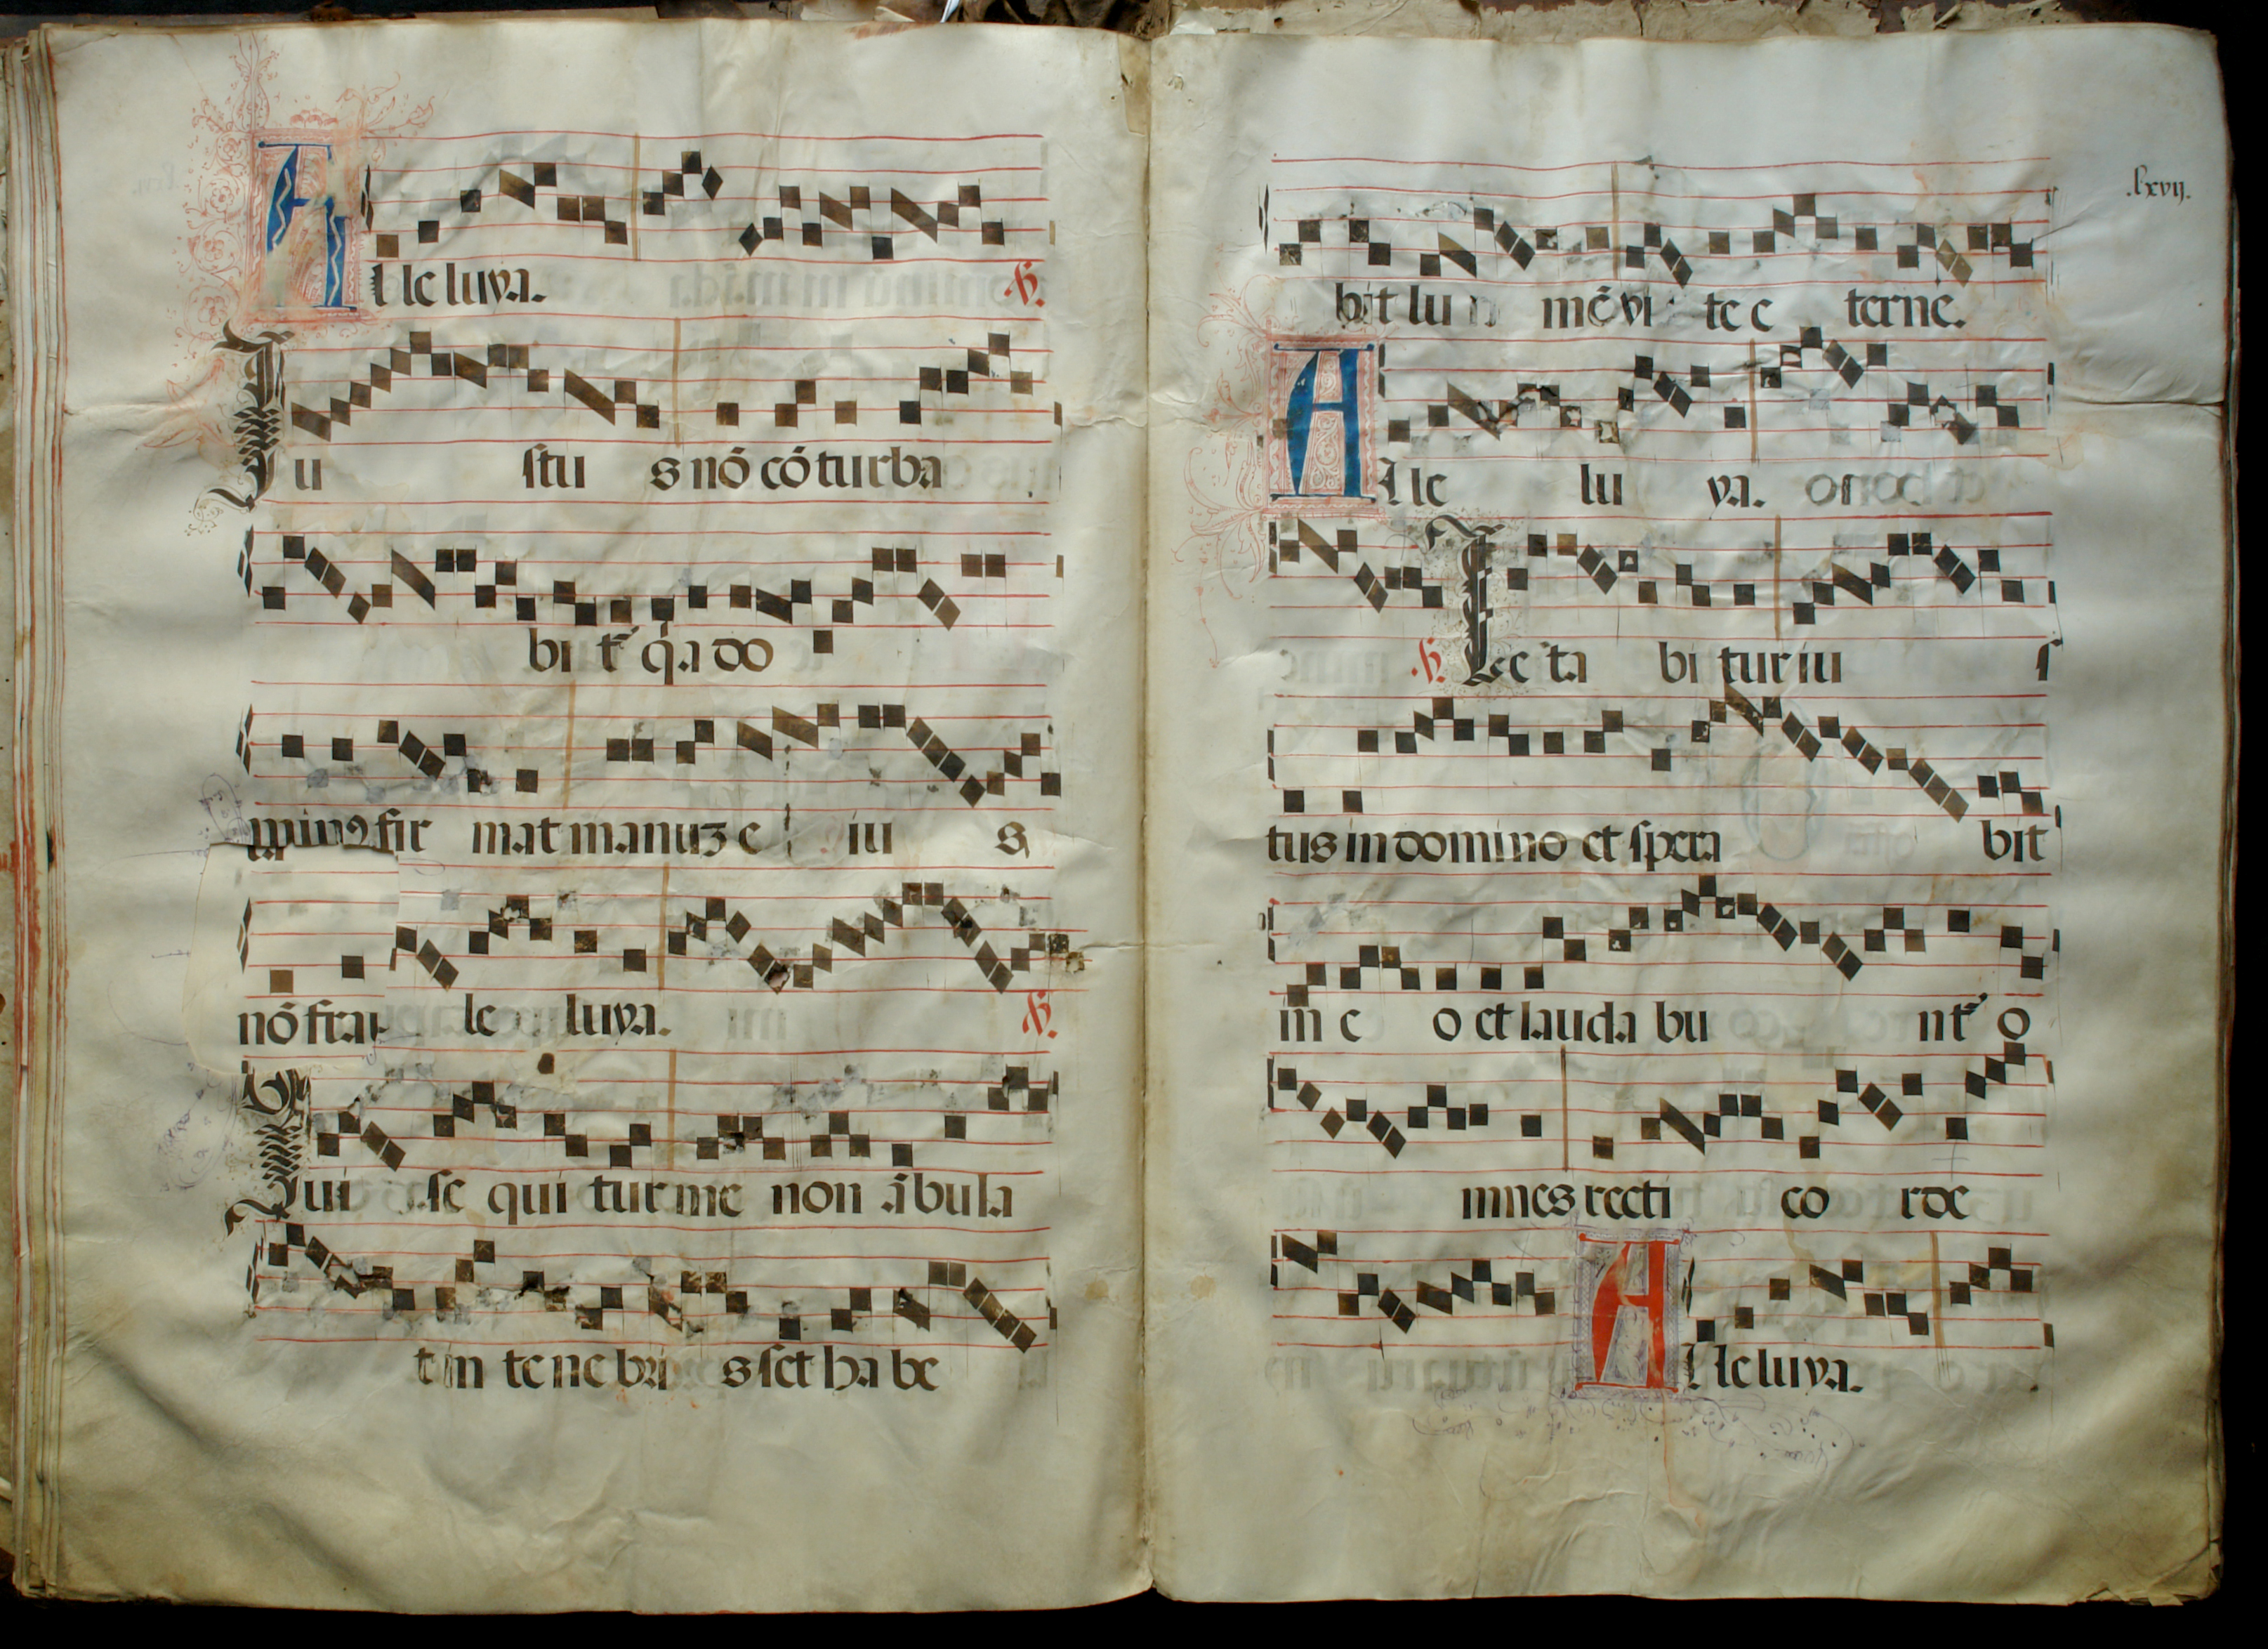 Alleluya. ℟.
Iu stu s nō cōturba
bit˜ q̇a do
minꝰ fir mat manuʒ e iu s
nō fra le luya. ℟.
Qui se qui tur me non ābula
t in te ne bri s ſet ha be
.lxvij.
bit lu mē vi te e terne.
Alle lu ya.
℟. Le ta bi tur iu ſ
tus in domino et ſpera bit
in e o et lauda bu nt˜ o
mnes recti co rde
Alleluya.